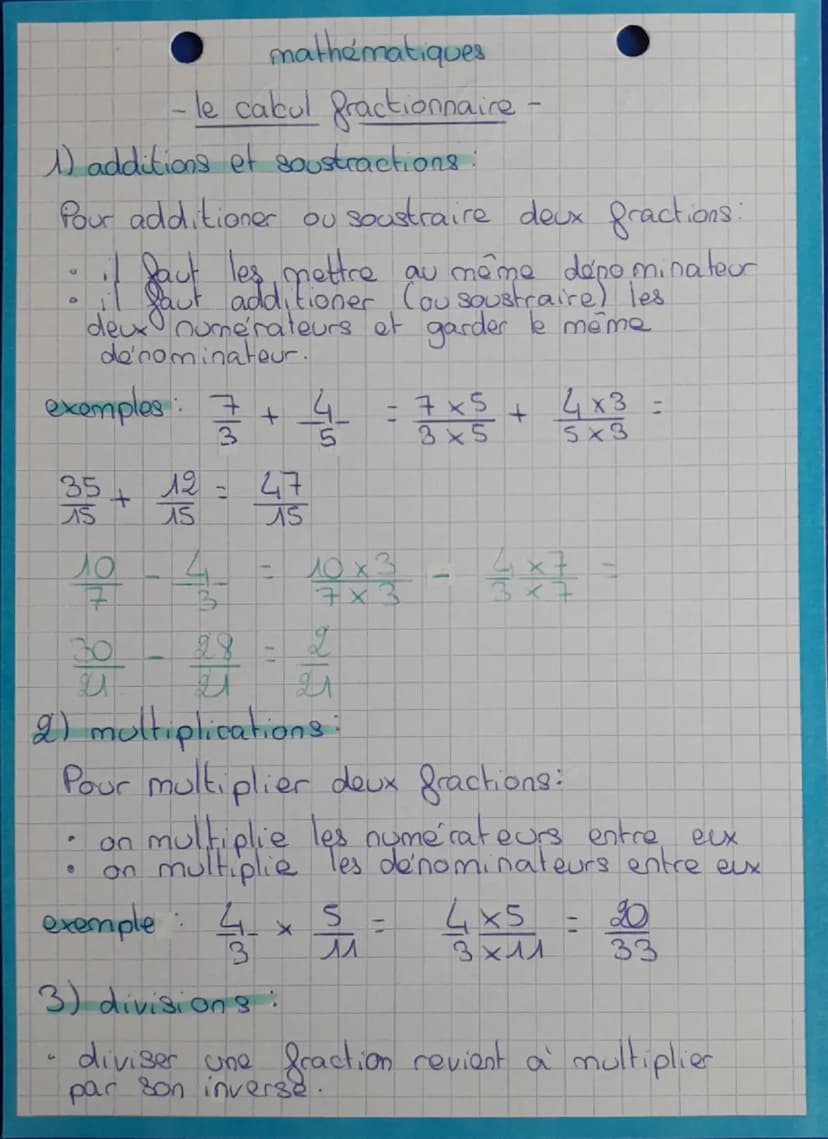 mathématiques
- le calcul fractionnaire -
1) additions et soustractions :
Pour additioner ou soustraire deux fractions :
• il faut les mettre au même dénominateur
• il faut additioner (ou soustraire) les
deux numérateurs et garder le même
dénominateur.
exemples : 7/3 + 4/5 = 7 x 5/3 x 5 + 4 x 3/5 x 3 =
35/15 + 12/15 = 47/15
10/7 - 4/3 = 10 x 3/7 x 3 - 4 x 7/3 x 7 =
30/21 - 28/21 = 2/21
2) multiplications :
Pour multiplier deux fractions :
• on multiplie les numérateurs entre eux
• on multiplie les dénominateurs entre eux
exemple : 4/3 x 5/11 = 4 x 5/3 x 11 = 20/33
3) divisions :
• diviser une fraction revient à multiplier
par son inverse.